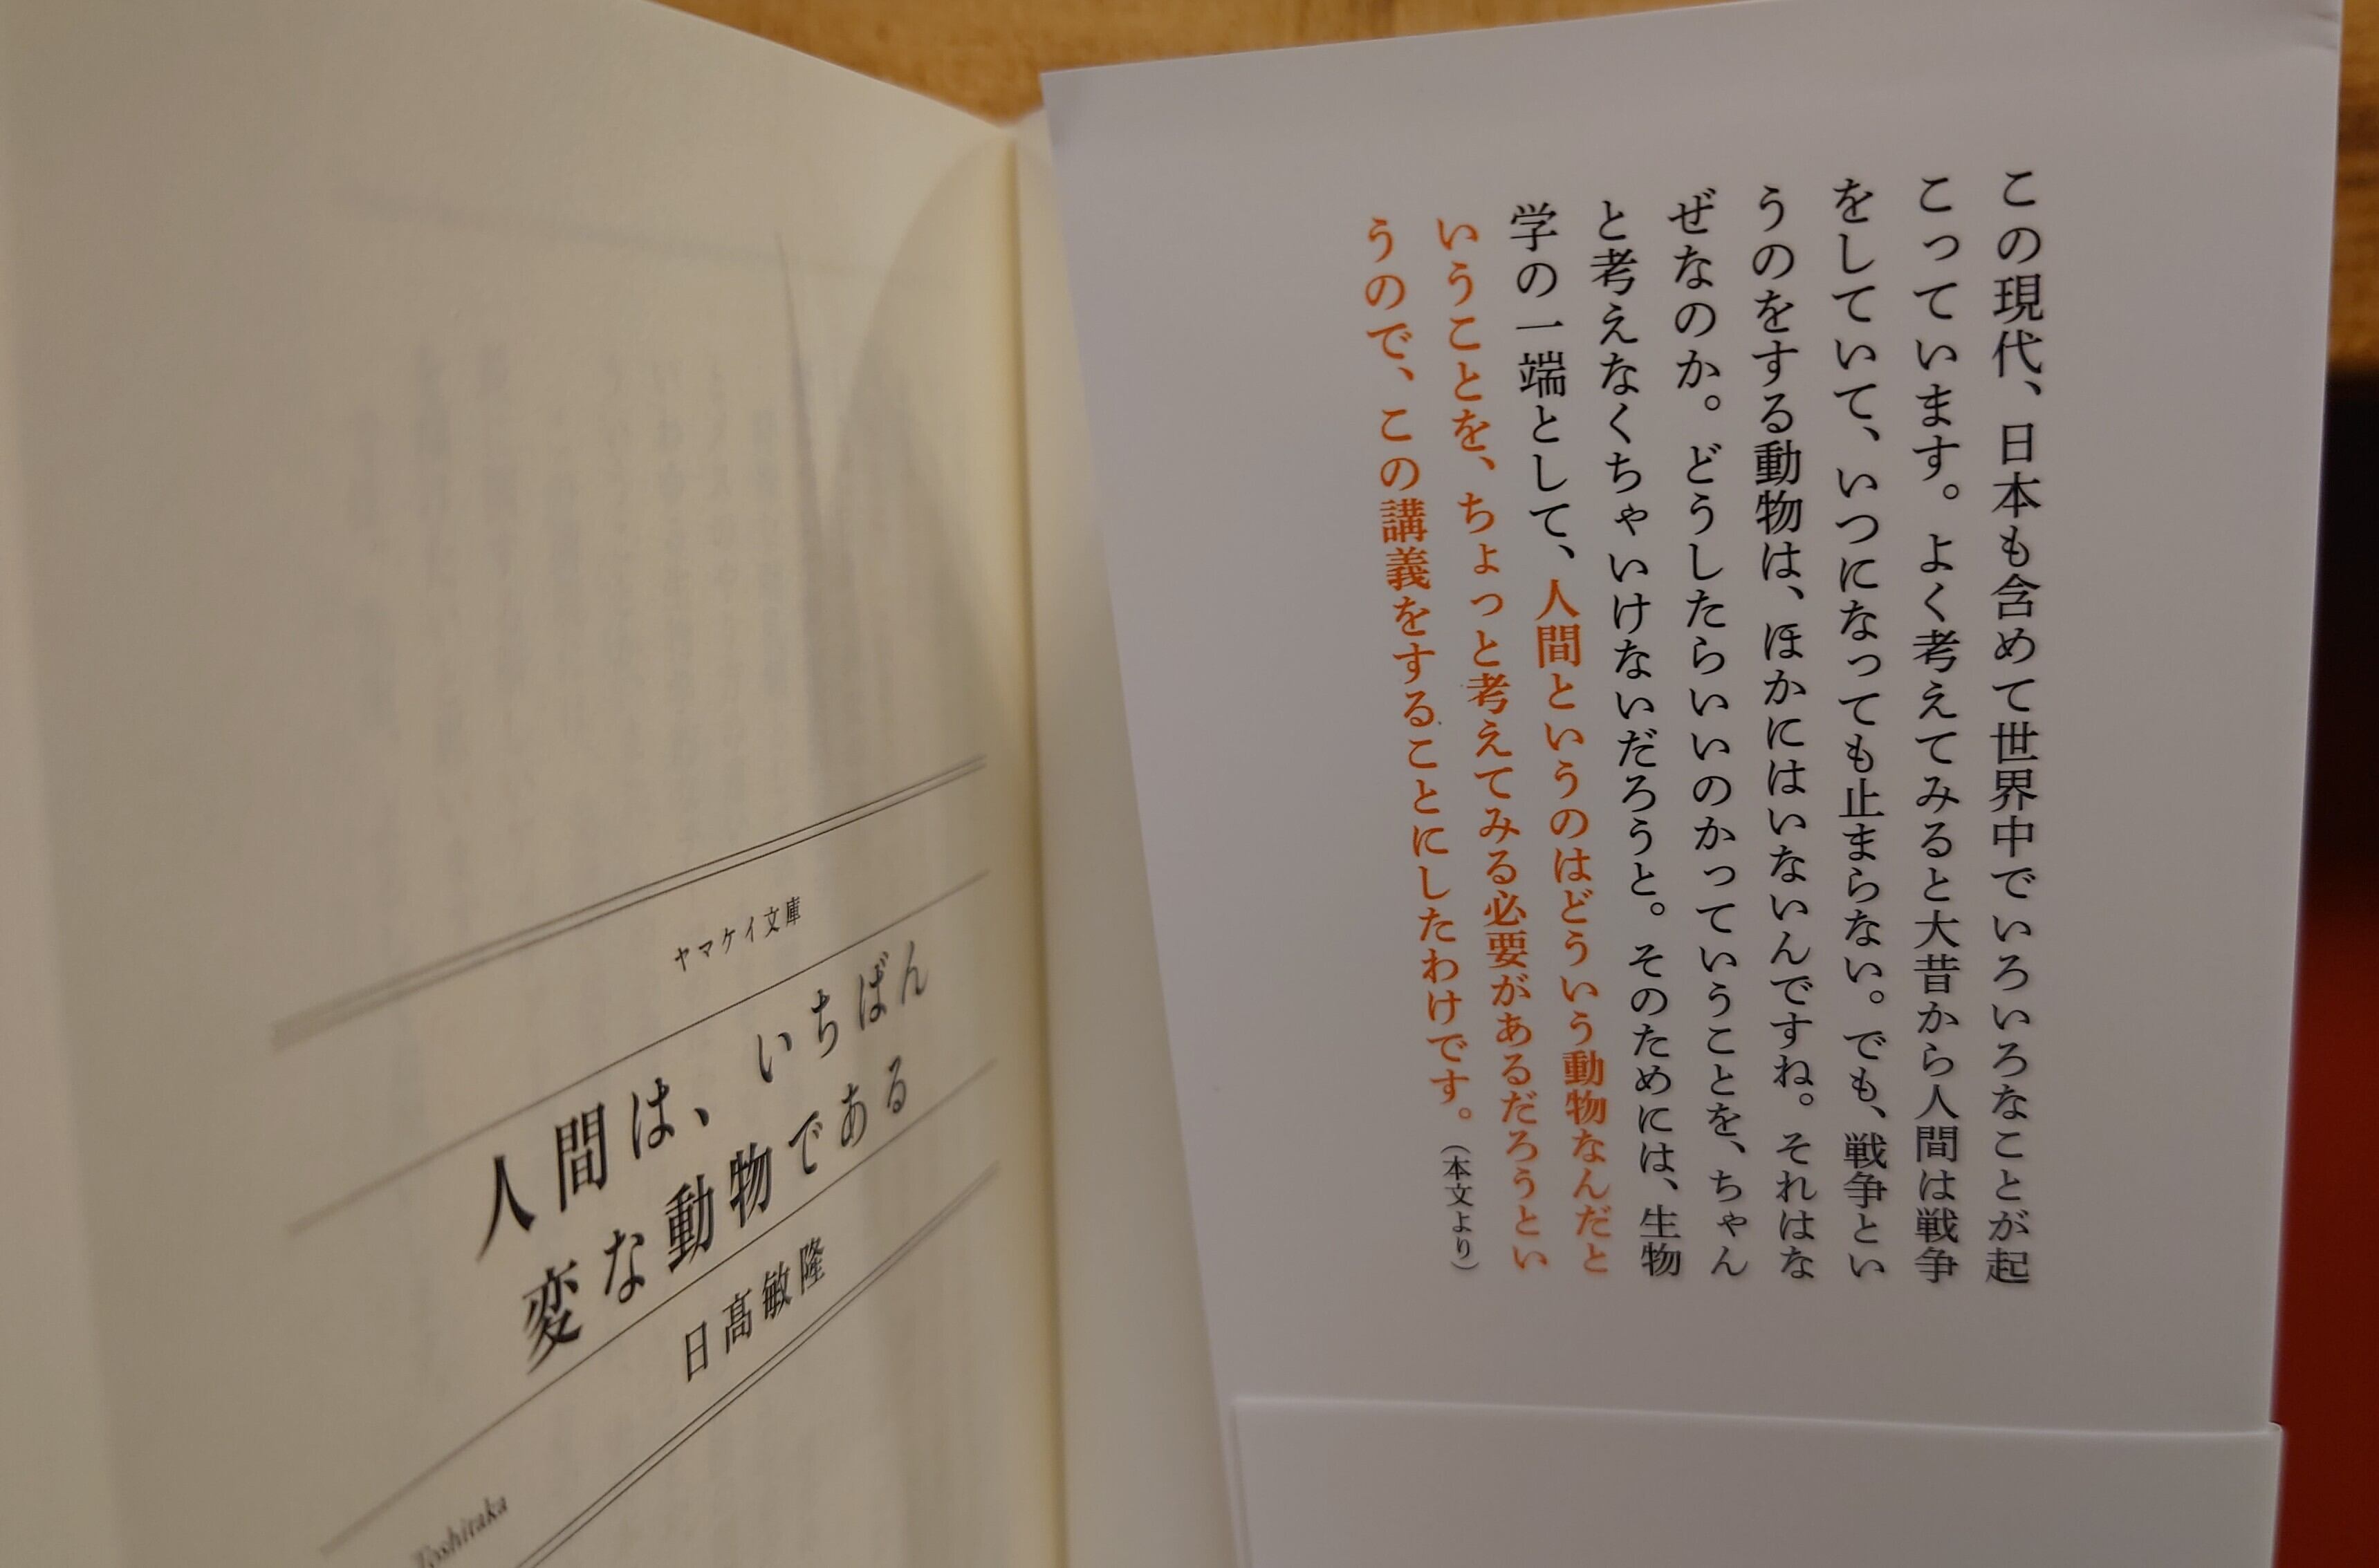 この現代、日本も含めて世界中でいろいろなことが起
こっています。よく考えてみると大昔から人間は戦争
をしていて、いつになっても止まらない。でも、戦争とい
うのをする動物は、ほかにはいないんですね。それはな
ぜなのか。どうしたらいいのかっていうことを、ちゃん
と考えなくちゃいけないだろうと。そのためには、生物
学の一端として、人間というのはどういう動物なんだと
いうことを、ちょっと考えてみる必要があるだろうとい
うので、この講義をすることにしたわけです。（本文より）
ヤマケイ文庫
人間は、いちばん
変な動物である
日髙敏隆
Toshitaka